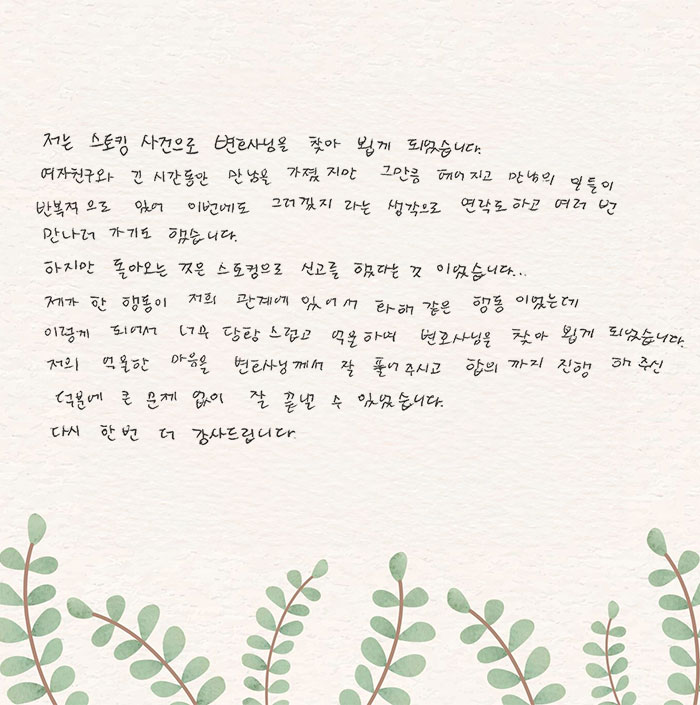 저는 스토킹 사건으로 변호사님을 찾아 뵙게 되었습니다.
여자친구와 긴 시간동안 만남을 가졌지만 그만큼 헤어지고 만남의 일들이
반복적으로 있어 이번에도 그러겠지 라는 생각으로 연락도하고 여러 번
만나러 가기도 했습니다.
하지만 돌아오는 것은 스토킹으로 신고를 했다는 것 이었습니다...
제가 한 행동이 저희 관계에 있어서 화해 같은 행동 이었는데
이렇게 되어서 너무 당황 스럽고 억울하여 변호사님을 찾아 뵙게 되었습니다.
저의 억울한 마음을 변호사님께서 잘 풀어주시고 합의 까지 진행 해 주신
덕분에 큰 문제 없이 잘 끝낼 수 있었습니다.
다시 한번 더 감사드립니다.